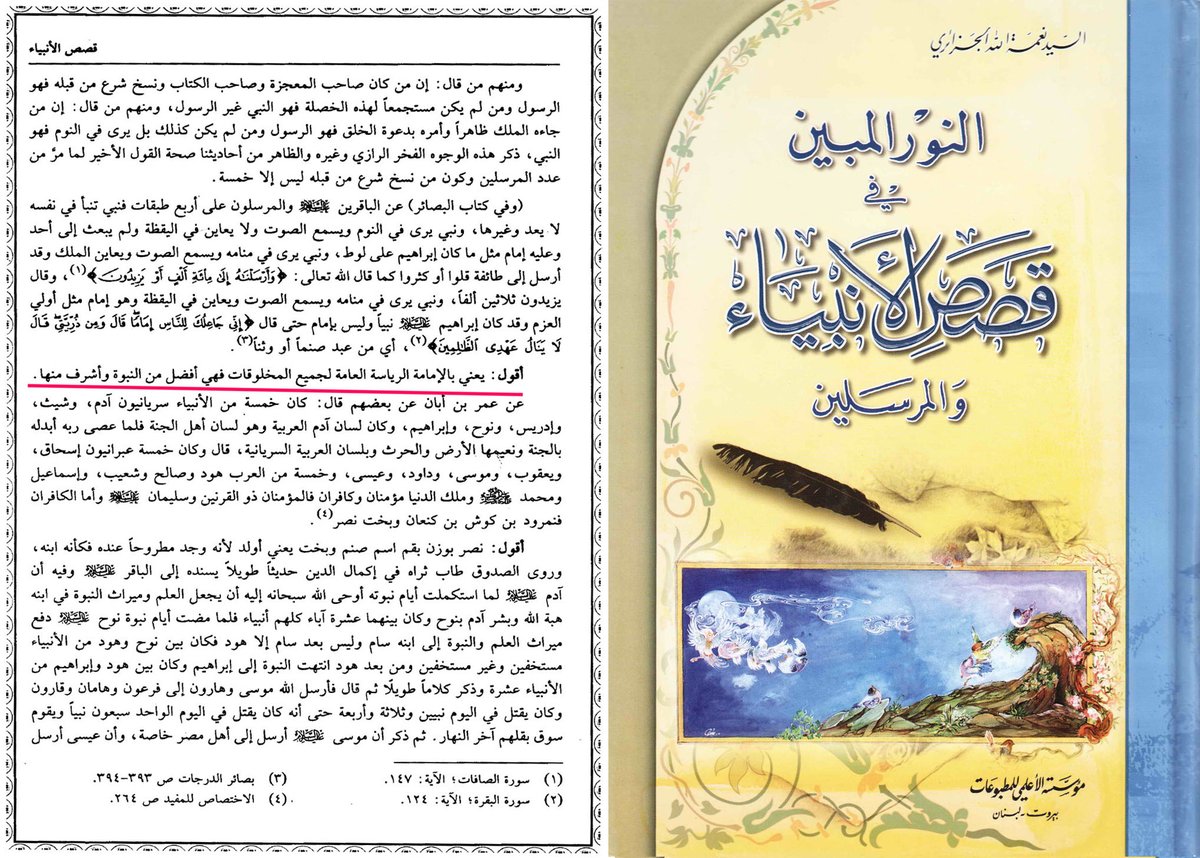 قصص الأنبياء
ومنهم من قال: إن من كان صاحب المعجزة وصاحب الكتاب ونسخ شرع من قبله فهو
الرسول ومن لم يكن مستجمعاً لهذه الخصلة فهو النبي غير الرسول، ومنهم من قال: إن من
جاءه الملك ظاهراً وأمره بدعوة الخلق فهو الرسول ومن لم يكن كذلك بل يرى في النوم فهو
النبي، ذكر هذه الوجوه الفخر الرازي وغيره والظاهر من أحاديثنا صحة القول الأخير لما مرّ من
عدد المرسلين وكون من نسخ شرع من قبله ليس إلا خمسة.
(وفي كتاب البصائر) عن الباقرين عليه السلام والمرسلون على أربع طبقات فنبي تنبأ في نفسه
لا يعد وغيرها، ونبي يرى في النوم ويسمع الصوت ولا يعاين في اليقظة ولم يبعث إلى أحد
وعليه إمام مثل ما كان إبراهيم على لوط، ونبي يرى في منامه ويسمع الصوت ويعاين الملك وقد
أرسل إلى طائفة قلوا أو كثروا كما قال الله تعالى: ﴿وَأَرْسَلْنَاهُ إِلَىٰ مِائَةِ أَلْفٍ أَوْ يَزِيدُونَ﴾(١)، وقال
يزيدون ثلاثين ألفاً، ونبي يرى في منامه ويسمع الصوت ويعاين في اليقظة وهو إمام مثل أولي
العزم وقد كان إبراهيم عليه السلام نبياً وليس بإمام حتى قال ﴿إِنِّي جَاعِلُكَ لِلنَّاسِ إِمَامًا قَالَ وَمِن ذُرِّيَّتِي قَالَ
لَا يَنَالُ عَهْدِي الظَّالِمِينَ﴾(٢)، أي من عبد صنماً أو وثناً(٣).
أقول: يعني بالإمامة الرياسة العامة لجميع المخلوقات فهي أفضل من النبوة وأشرف منها.
عن عمر بن أبان عن بعضهم قال: كان خمسة من الأنبياء سريانيون آدم، وشيث،
وإدريس، ونوح، وإبراهيم، وكان لسان آدم العربية وهو لسان أهل الجنة فلما عصى ربه أبدله
بالجنة ونعيمها الأرض والحرث وبلسان العربية السريانية، قال وكان خمسة عبرانيون إسحاق،
ويعقوب، وموسى، وداود، وعيسى، وخمسة من العرب هود وصالح وشعيب، وإسماعيل
ومحمد صلى الله عليه وآله وسلم وملك الدنيا مؤمنان وكافران فالمؤمنان ذو القرنين وسليمان عليه السلام وأما الكافران
فنمرود بن كوش بن كنعان وبخت نصر(٤).
أقول: نصر بوزن بقم اسم صنم وبخت يعني أولد لأنه وجد مطروحاً عنده فكأنه ابنه،
وروى الصدوق طاب ثراه في إكمال الدين حديثاً طويلاً يسنده إلى الباقر عليه السلام وفيه أن
آدم عليه السلام لما استكملت أيام نبوته أوحى الله سبحانه إليه أن يجعل العلم وميراث النبوة في ابنه
هبة الله وبشر آدم بنوح وكان بينهما عشرة آباء كلهم أنبياء فلما مضت أيام نبوة نوح عليه السلام دفع
ميراث العلم والنبوة إلى ابنه سام وليس بعد سام إلا هود فكان بين نوح وهود من الأنبياء
مستخفين وغير مستخفين ومن بعد هود انتهت النبوة إلى إبراهيم وكان بين هود وإبراهيم من
الأنبياء عشرة وذكر كلاماً طويلاً ثم قال فأرسل الله موسى وهارون إلى فرعون وهامان وقارون
وكان يقتل في اليوم نبيين وثلاثة وأربعة حتى أنه كان يقتل في اليوم الواحد سبعون نبياً ويقوم
سوق بقلهم آخر النهار. ثم ذكر أن موسى عليه السلام أرسل إلى أهل مصر خاصة، وأن عيسى أرسل
(١) سورة الصافات؛ الآية: ١٤٧.
(٢) سورة البقرة؛ الآية: ١٢٤.
(٣) بصائر الدرجات ص ٣٩٣-٣٩٤.
(٤) الاختصاص للمفيد ص ٢٦٤.
السيد نعمة الله الجزائري
النور المبين
في
قصص الأنبياء
والمرسلين
مؤسسة الأعلمي للمطبوعات
بيروت - لبنان